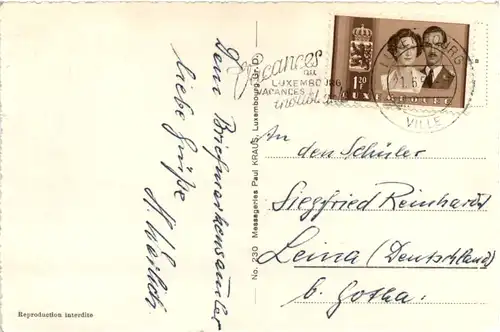 Dem Briefmarkensammler
liebe Grüße
Vacances
au
LUXEMBOURG
VACANCES
inoubliables
LUXEMBOURG
VILLE
1 20
F
LUXEMBOURG
An
den Schüler
Siegfried Reinhardt
Leina (Deutschland)
b. Gotha.
No. 230 Messageries Paul KRAUS, Luxembourg Gr. D.
Reproduction interdite